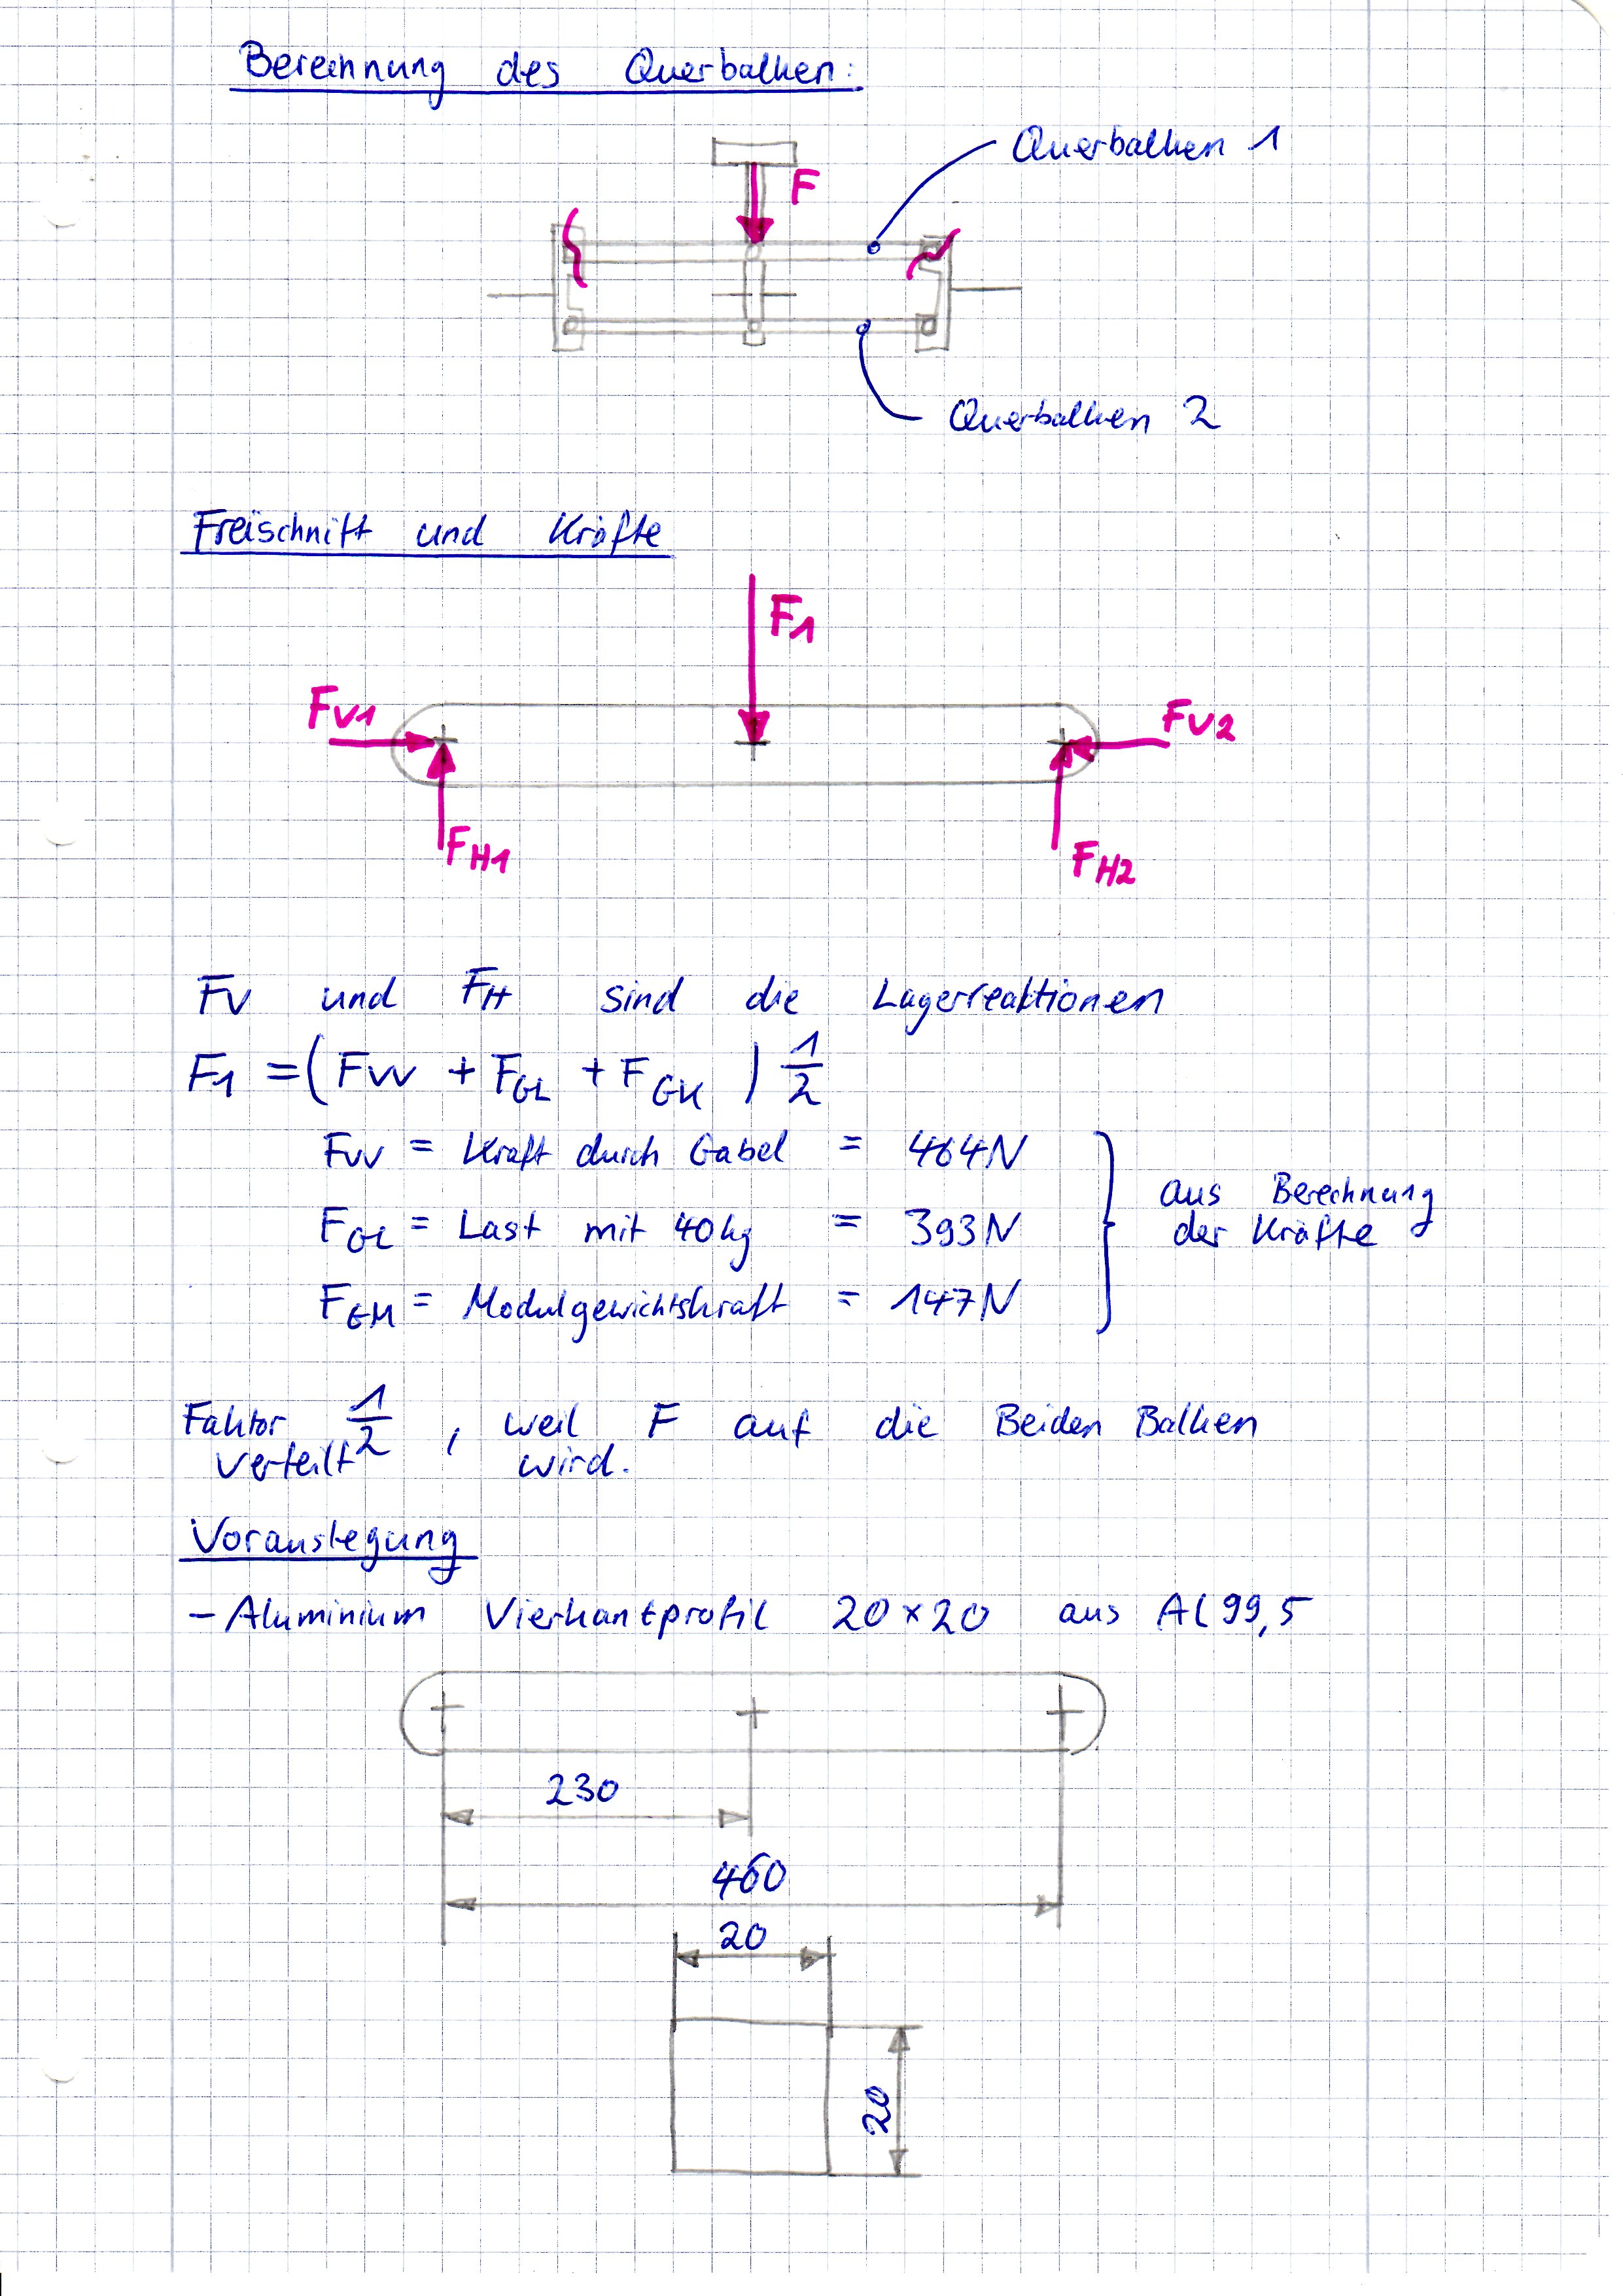 Berechnung des Querbalken:
Querbalken 1
F
Querbalken 2
Freischnitt und Kräfte
F1
FV1
FV2
FH1
FH2
FV und FH sind die Lagerreaktionen
F1 = (FVV + FGL + FGK) 1/2
FVV = Kraft durch Gabel = 464N
FGL = Last mit 40kg = 393N
FGM = Modulgewichtskraft = 147N
aus Berechnung
der Kräfte
Faktor 1/2, weil F auf die Beiden Balken
verteilt wird.
Vorauslegung
- Aluminium Vierkantprofil 20×20 aus Al99,5
230
460
20
20